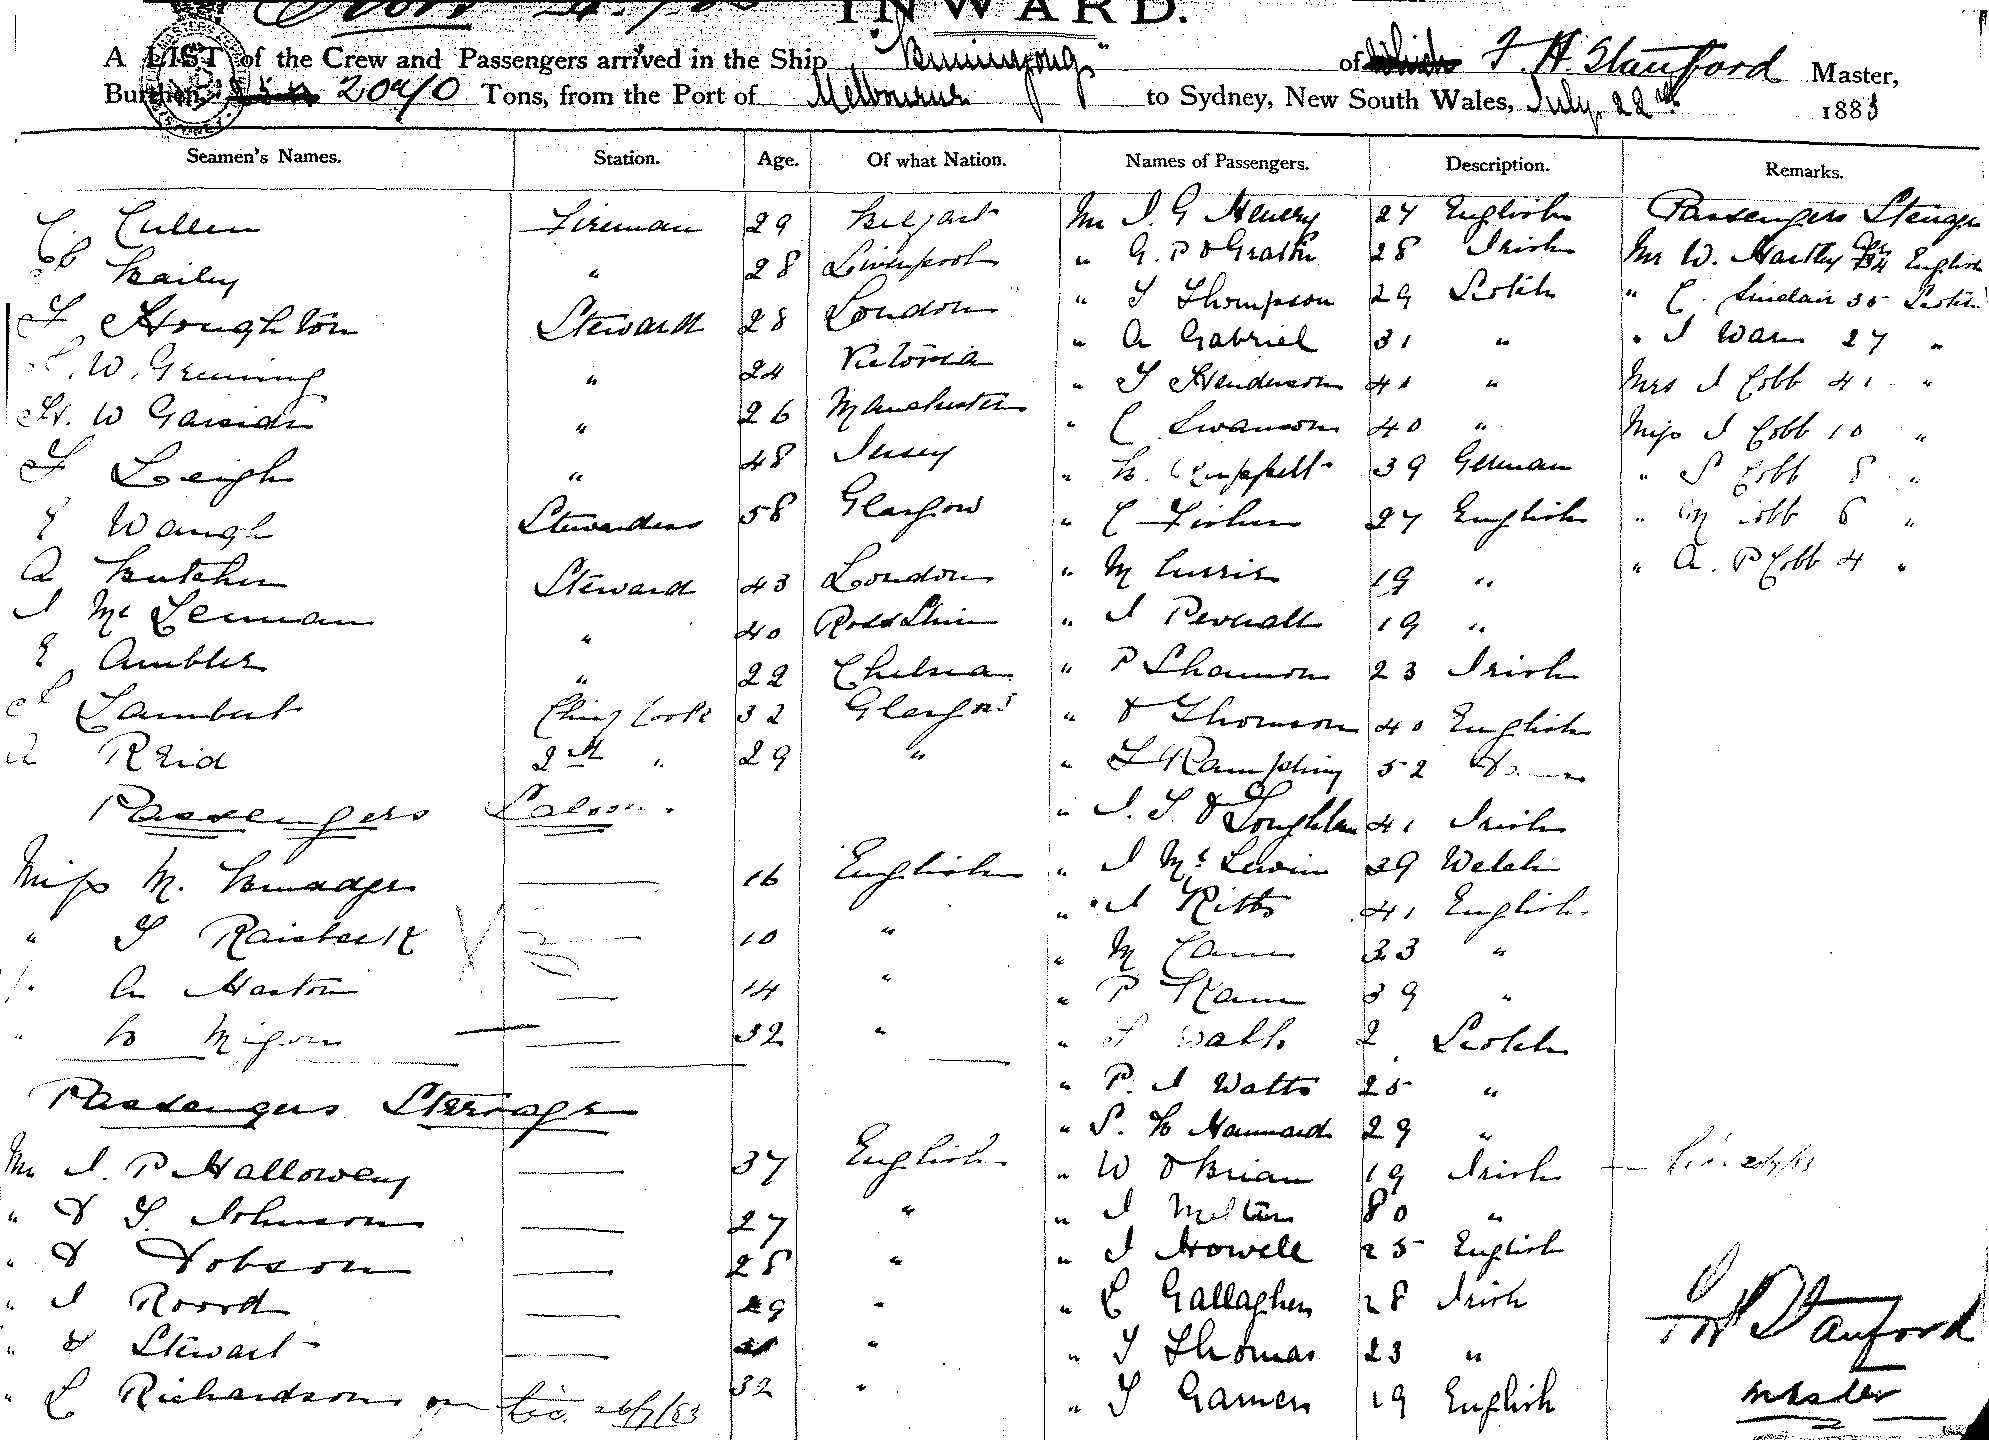 INWARD.
A LIST of the Crew and Passengers arrived in the Ship "Buninyong" of F. H. Stanford Master,
Burthen 2070 Tons, from the Port of Melbourne to Sydney, New South Wales, July 22nd 1883
Seamen's Names. Station. Age. Of what Nation. Names of Passengers. Description. Remarks.
C. Cullen Fireman 29 Belfast
Bailey " 28 Liverpool
F Houghton Steward 28 London
W. Greining " 24 Victoria
H. W Garside " 26 Manchester
F Leigh " 48 Jersey
E Waugh Stewardess 58 Glasgow
A Butcher Steward 43 London
J McLennan " 40 Ross Shire
E Ambler " 22 Chelsea
Lambert Chief Cook 32 Glasgow
A Reid 2nd " 29 "
Passengers Saloon
Miss M. 16 English
" T Raisbeck 10 "
" A Harton 14 "
" B 32 "
Passengers Steerage
Mr J. P Halloway 37 English
" D S. Johnson 27 "
" D Dobson 28 "
" J Roord 29 "
" D Stewart "
" C Richardson 32 "
Mr J. G Henery 27 English
" G. P 28 Irish
" T Thompson 29 Scotch
" A Gabriel 31 "
" T Henderson 41 "
" C Swanson 40 "
" 39 German
" C Fisher 27 English
" M Currie 19 "
" J 19 "
" P Shannon 23 Irish
" D Thomson 40 English
" Rampling 52
" J. S. O'Loughlan 41 Irish
" J McLewin 39 Welch
" J Kitts 41 English
" M Cann 33 "
" P Kann 39 "
" 2 Scotch
" P. J Watts 25 "
" S. B Hannard 29 "
" W O'Brian 19 Irish
" J Melton 80 "
" J Howell 25 English
" C Gallagher 28 Irish
" T Thomas 23 "
" T Garner 19 English
Passengers Steerage
Mr W. Hartley English
" C. Sinclair 35 Scotch
" J Warn 27 "
Mrs J Cobb 41 "
Miss J Cobb 10 "
" S Cobb 8 "
" M Cobb 6 "
" A. P Cobb 4 "
F H Stanford
Master